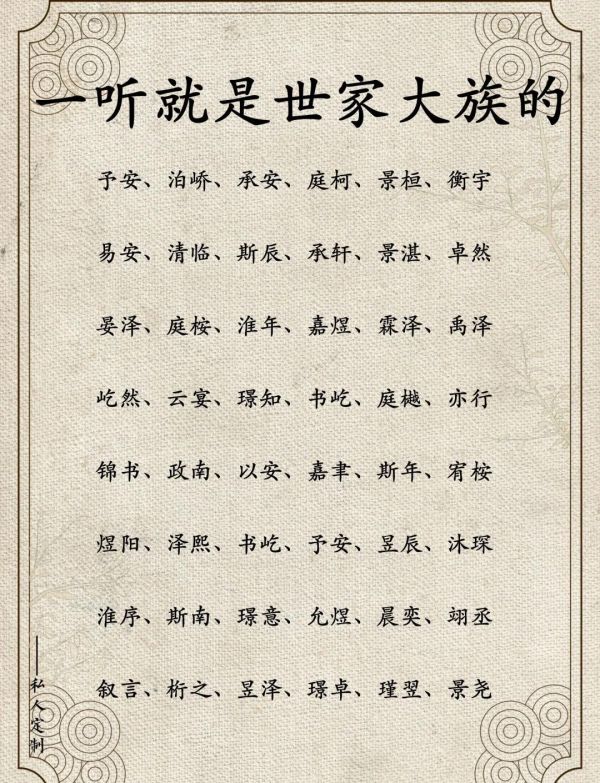 一听就是世家大族的
予安、泊峤、承安、庭柯、景桓、衡宇
易安、清临、斯辰、承轩、景湛、卓然
晏泽、庭桉、淮年、嘉煜、霖泽、禹泽
屹然、云宴、璟知、书屹、庭樾、亦行
锦书、政南、以安、嘉聿、斯年、宥桉
煜阳、泽熙、书屹、予安、昱辰、沐琛
淮序、斯南、璟意、允煜、晨奕、翊丞
叙言、桁之、昱泽、璟卓、瑾翌、景尧
——私人定制